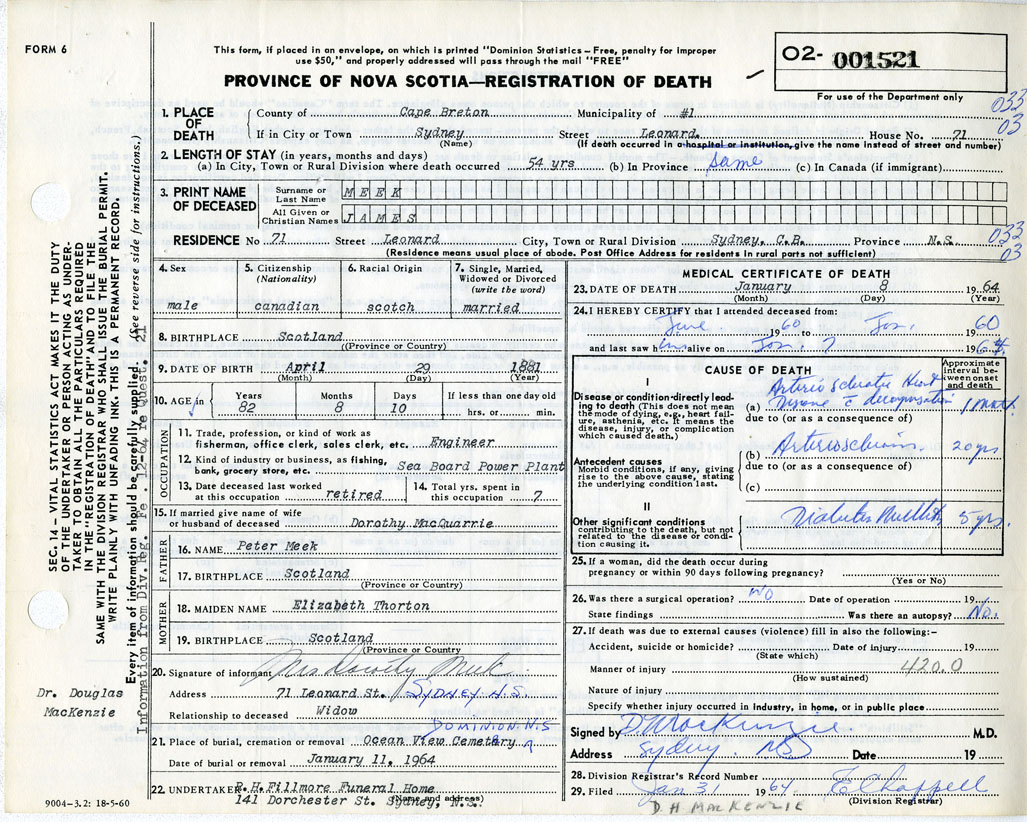 FORM 6
This form, if placed in an envelope, on which is printed "Dominion Statistics—Free, penalty for improper
use $50," and properly addressed will pass through the mail "FREE"
PROVINCE OF NOVA SCOTIA—REGISTRATION OF DEATH
02- 001521
For use of the Department only
033
03
1. PLACE OF DEATH
County of Cape Breton Municipality of #1
If in City or Town Sydney Street Leonard. House No. 71
(Name) (If death occurred in a hospital or institution, give the name instead of street and number)
2. LENGTH OF STAY (in years, months and days)
(a) In City, Town or Rural Division where death occurred 54 yrs (b) In Province same (c) In Canada (if immigrant)
3. PRINT NAME OF DECEASED
Surname or Last Name MEEK
All Given or Christian Names JAMES
033
03
RESIDENCE No 71 Street Leonard City, Town or Rural Division Sydney, C.B. Province N.S.
(Residence means usual place of abode. Post Office Address for residents in rural parts not sufficient)
4. Sex
male
5. Citizenship
(Nationality)
canadian
6. Racial Origin
scotch
7. Single, Married,
Widowed or Divorced
(write the word)
married
8. BIRTHPLACE Scotland
(Province or Country)
9. DATE OF BIRTH April 29 1881
(Month) (Day) (Year)
10. AGE in
Years Months Days If less than one day old
82 8 10 hrs. or min.
OCCUPATION
11. Trade, profession, or kind of work as
fisherman, office clerk, sales clerk, etc. Engineer
12. Kind of industry or business, as fishing,
bank, grocery store, etc. Sea Board Power Plant
13. Date deceased last worked
at this occupation retired
14. Total yrs. spent in
this occupation 7
15. If married give name of wife
or husband of deceased Dorothy MacQuarrie
FATHER
16. NAME Peter Meek
17. BIRTHPLACE Scotland
(Province or Country)
MOTHER
18. MAIDEN NAME Elizabeth Thorton
19. BIRTHPLACE Scotland
(Province or Country
20. Signature of informant Mrs Dorothy Meek
Address 71 Leonard St. SYDNEY N.S.
Relationship to deceased Widow
DOMINION. N.S
21. Place of burial, cremation or removal Ocean View Cemetery
Date of burial or removal January 11, 1964
22. UNDERTAKER R.H. Fillmore Funeral Home
141 Dorchester St. Sydney, N.S.
(Name and address)
MEDICAL CERTIFICATE OF DEATH
23. DATE OF DEATH January 8 1964
(Month) (Day) (Year)
24. I HEREBY CERTIFY that I attended deceased from:
June 1960 to Jan. 1960
and last saw him alive on Jan. 7 1964
CAUSE OF DEATH
Approximate
interval be-
tween onset
and death
I
Disease or condition directly lead-
ing to death (This does not mean
the mode of dying, e.g., heart fail-
ure, asthenia, etc. It means the
disease, injury, or complication
which caused death.)
Arteriosclerotic Heart
(a) Disease c decompensation 1 month
due to (or as a consequence of)
Antecedent causes
Morbid conditions, if any, giving
rise to the above cause, stating
the underlying condition last.
(b) Arteriosclerosis 20 yrs
due to (or as a consequence of)
(c)
II
Other significant conditions
contributing to the death, but not
related to the disease or condi-
tion causing it.
Diabetes Mellitus 5 yrs.
25. If a woman, did the death occur during
pregnancy or within 90 days following pregnancy?
(Yes or No)
26. Was there a surgical operation? NO Date of operation 19
State findings Was there an autopsy? No.
27. If death was due to external causes (violence) fill in also the following:—
Accident, suicide or homicide? Date of injury 19
(State which)
Manner of injury 420.0
(How sustained)
Nature of injury
Specify whether injury occurred in industry, in home, or in public place
Signed by D. MacKenzie M.D.
Address Sydney. NS Date 19
28. Division Registrar's Record Number
29. Filed Jan 31 1964 E Chappell
(Division Registrar)
D. H MACKENZIE
SEC. 14—VITAL STATISTICS ACT MAKES IT THE DUTY
OF THE UNDERTAKER OR PERSON ACTING AS UNDER-
TAKER TO OBTAIN ALL THE PARTICULARS REQUIRED
IN THE "REGISTRATION OF DEATH" AND TO FILE THE
SAME WITH THE DIVISION REGISTRAR WHO SHALL ISSUE THE BURIAL PERMIT.
WRITE PLAINLY WITH UNFADING INK. THIS IS A PERMANENT RECORD.
Every item of information should be carefully supplied. See reverse side for instructions.
Information from Div. Reg. Fe . 12-64 re Quest. 21
Dr. Douglas
MacKenzie
9004-3.2: 18-5-60